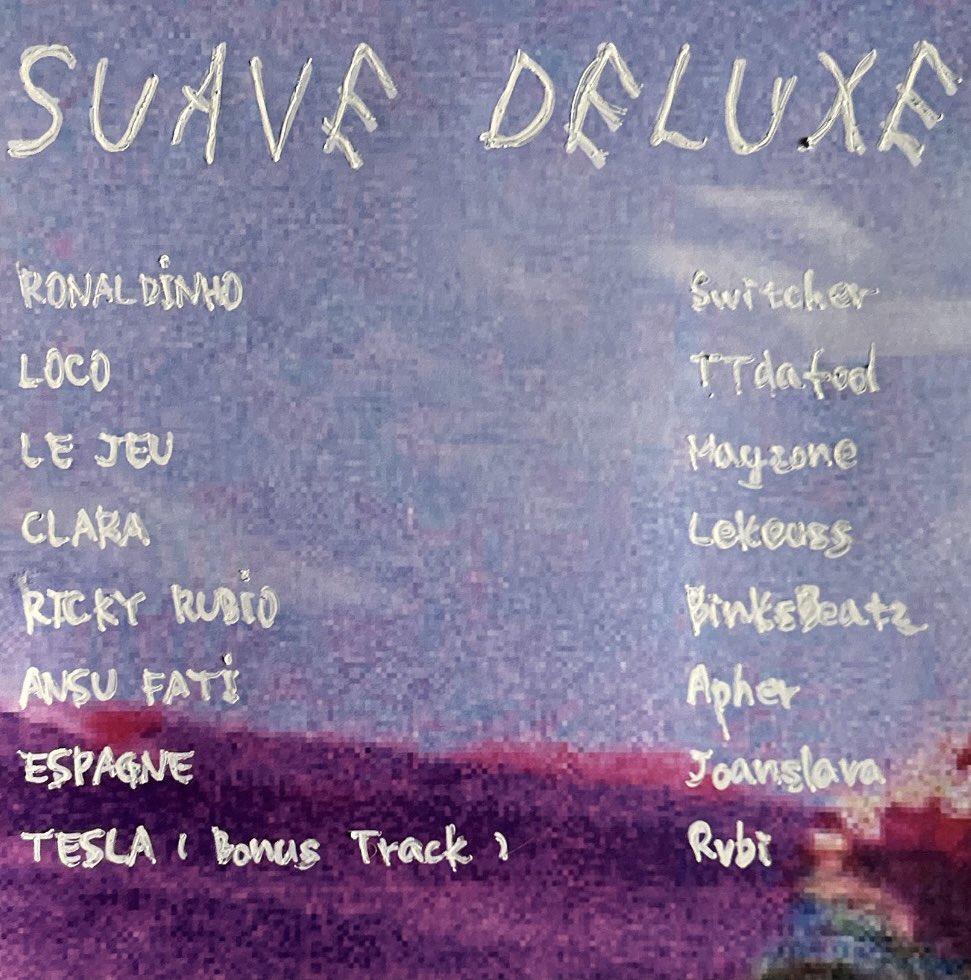 SUAVE DELUXE
RONALDINHO Switcher
LOCO TTdafool
LE JEU Mayzone
CLARA Lekouss
RICKY RUBIO BinksBeatz
ANSU FATI Apher
ESPAGNE Joanslava
TESLA ( Bonus Track ) Rvbi